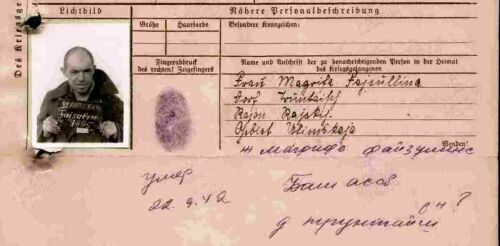 Des Kriegsge
Lichtbild
Nähere Personalbeschreibung
Größe
Haarfarbe
Besondere Kennzeichen:
Fingerabdruck
des rechten! Zeigefingers
Name und Anschrift der zu benachrichtigenden Person in der Heimat
des Kriegsgefangenen
Frau Magrifa Fajsullina
Dorf
Rajon
Gebiet
Wenden!
ж Магрифа Файзулина
умер
22.9.42
Баш асср
д